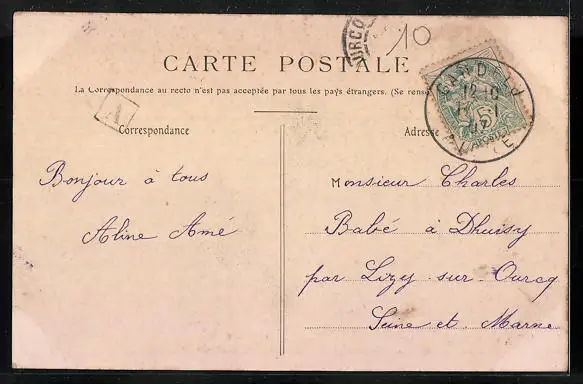 URCQ
10
CARTE POSTALE
La Correspondance au recto n'est pas acceptée par tous les pays étrangers. (Se rense
A
Correspondance
Adresse
5
POSTES
Bonjour à tous
Aline Amé
Monsieur Charles
Babé à Dhuisy
par Lizy-sur-Ourcq
Seine et Marne